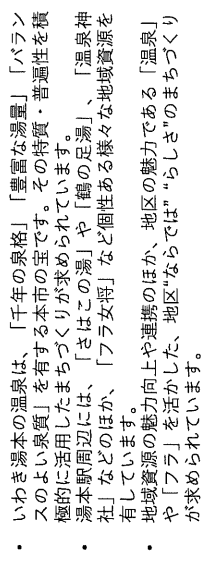 • いわき湯本の温泉は、「千年の泉格」「豊富な湯量」「バラン
スのよい泉質」を有する本市の宝です。その特質・普遍性を積
極的に活用したまちづくりが求められています。
• 湯本駅周辺には、「さはこの湯」や「鶴の足湯」、「温泉神
社」などのほか、「フラ女将」など個性ある様々な地域資源を
有しています。
• 地域資源の魅力向上や連携のほか、地区の魅力である「温泉」
や「フラ」を活かした、地区“ならでは”“らしさ”のまちづくり
が求められています。